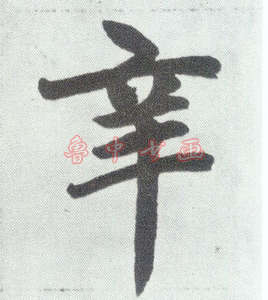 辛
鲁中书画